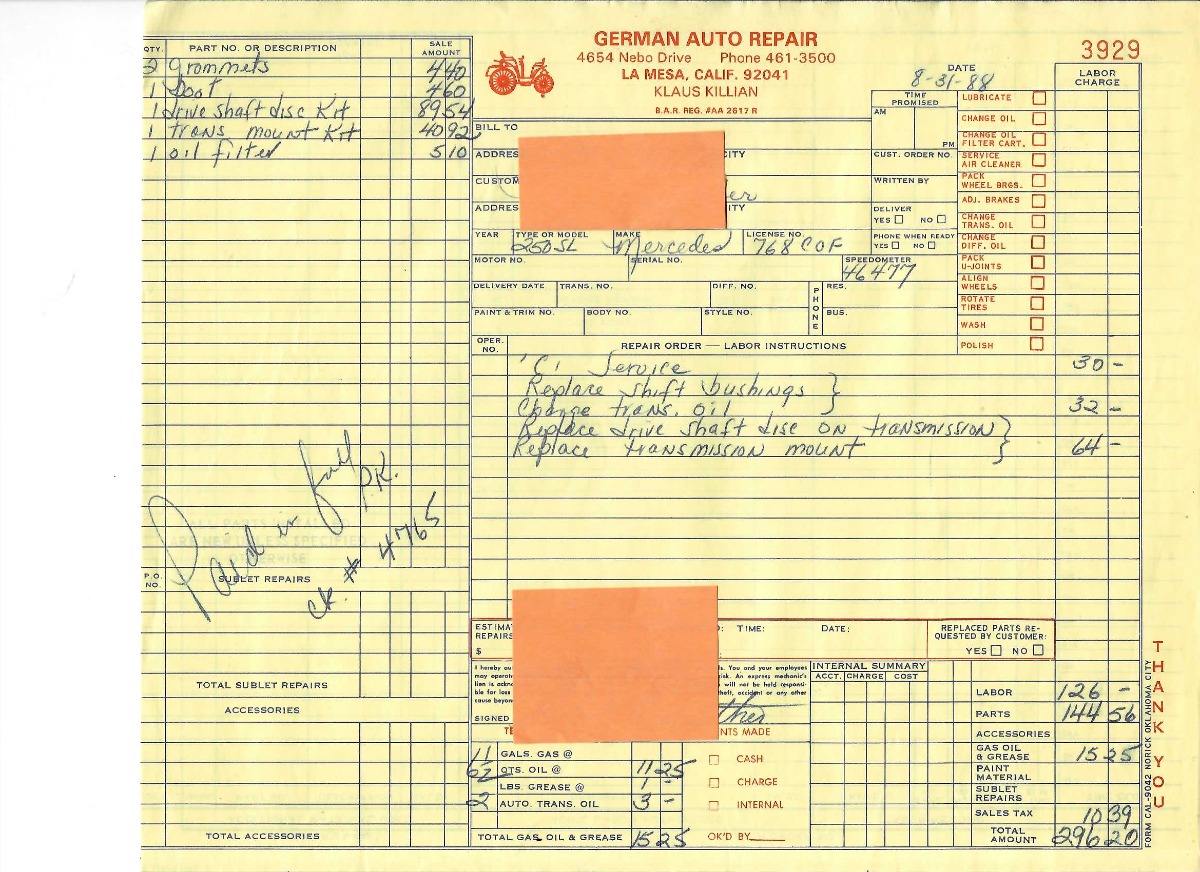 GERMAN AUTO REPAIR
4654 Nebo Drive Phone 461-3500
LA MESA, CALIF. 92041
KLAUS KILLIAN
B.A.R. REG. #AA 2617 R
3929
DATE
8-31-88
QTY. PART NO. OR DESCRIPTION SALE AMOUNT
2 Grommets 4 40
1 Boot 4 60
1 drive shaft disc Kit 89 54
1 trans mount Kit 40 92
1 oil filter 5 10
Paid in full
P.K.
ck. # 4765
P.O. NO. SUBLET REPAIRS
TOTAL SUBLET REPAIRS
ACCESSORIES
TOTAL ACCESSORIES
BILL TO
ADDRES CITY
CUSTOM er
ADDRES CITY
YEAR TYPE OR MODEL MAKE LICENSE NO.
250 SL Mercedes 768 COF
MOTOR NO. SERIAL NO. SPEEDOMETER
46477
DELIVERY DATE TRANS. NO. DIFF. NO. PHONE RES.
PAINT & TRIM NO. BODY NO. STYLE NO. BUS.
TIME PROMISED
AM
PM
CUST. ORDER NO.
WRITTEN BY
DELIVER
YES NO
PHONE WHEN READY
YES NO
LABOR CHARGE
LUBRICATE
CHANGE OIL
CHANGE OIL FILTER CART.
SERVICE AIR CLEANER
PACK WHEEL BRGS.
ADJ. BRAKES
CHANGE TRANS. OIL
CHANGE DIFF. OIL
PACK U-JOINTS
ALIGN WHEELS
ROTATE TIRES
WASH
POLISH
OPER. NO. REPAIR ORDER — LABOR INSTRUCTIONS
'C' Service 30 -
Replace shift bushings }
Change trans. oil 32 -
Replace drive shaft disc on transmission }
Replace transmission mount 64 -
ESTIMA
REPAIRS
$
TIME: DATE:
REPLACED PARTS RE-
QUESTED BY CUSTOMER:
YES NO
I hereby au s. You and your employees
may operat isk. An express mechanic's
lien is ackno will not be held responsi-
ble for loss theft, accident or any other
cause beyon
SIGNED ther
TE NTS MADE
11 GALS. GAS @
6½ QTS. OIL @ 11 25
LBS. GREASE @ 1 -
2 AUTO. TRANS. OIL 3 -
TOTAL GAS, OIL & GREASE 15 25
CASH
CHARGE
INTERNAL
OK'D BY
INTERNAL SUMMARY
ACCT. CHARGE COST
LABOR 126 -
PARTS 144 56
ACCESSORIES
GAS OIL & GREASE 15 25
PAINT MATERIAL
SUBLET REPAIRS
SALES TAX 10 39
TOTAL AMOUNT 296 20
THANK YOU
FORM CAL-9042 NORICK OKLAHOMA CITY